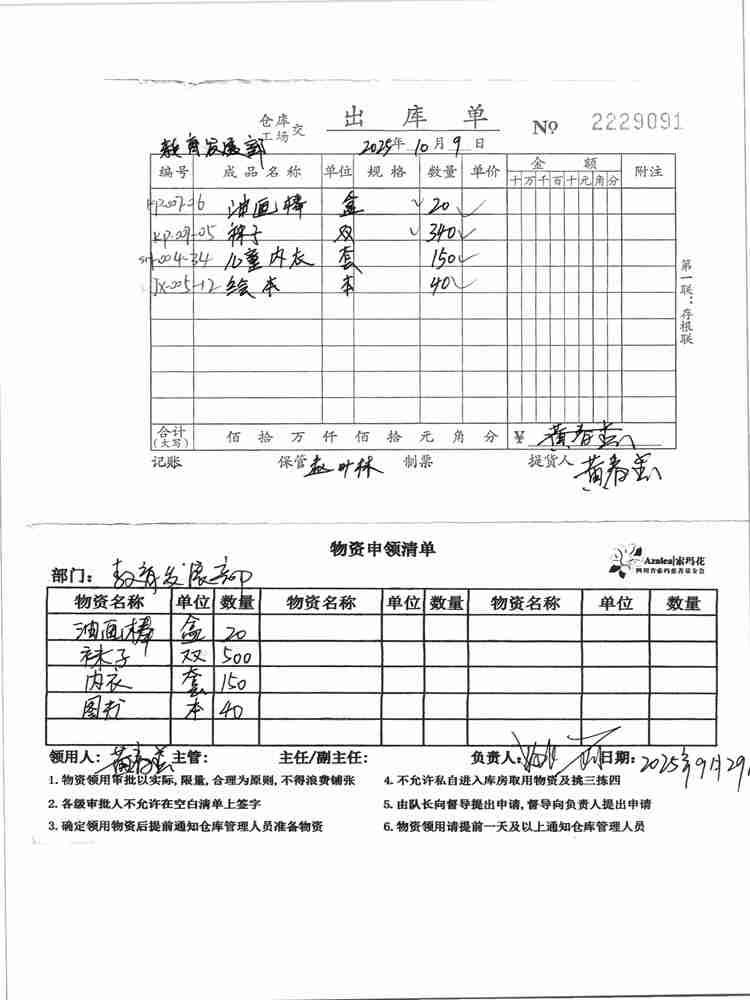 出 库 单
仓库
工场 交
No 2229091
教育发展部 2025年 10月 9日
编号 成品名称 单位 规格 数量 单价 金额 附注
十万千百十元角分
油画棒 盒 √ 20 √
袜子 双 √ 340 √
儿童内衣 套 150 √
JX-005-12 绘本 本 40 √
第一联：存根联
合计(大写) 佰 拾 万 仟 佰 拾 元 角 分 ¥
记账 保管 制票 提货人
物资申领清单
Azalea|索玛花
四川省索玛慈善基金会
部门：教育发展部
物资名称 单位 数量 物资名称 单位 数量 物资名称 单位 数量
油画棒 盒 20
袜子 双 500
内衣 套 150
图书 本 40
领用人： 主管： 主任/副主任： 负责人： 日期：2025年9月29
1.物资领用审批以实际,限量,合理为原则,不得浪费铺张
4.不允许私自进入库房取用物资及挑三拣四
2.各级审批人不允许在空白清单上签字
5.由队长向督导提出申请,督导向负责人提出申请
3.确定领用物资后提前通知仓库管理人员准备物资
6.物资领用请提前一天及以上通知仓库管理人员